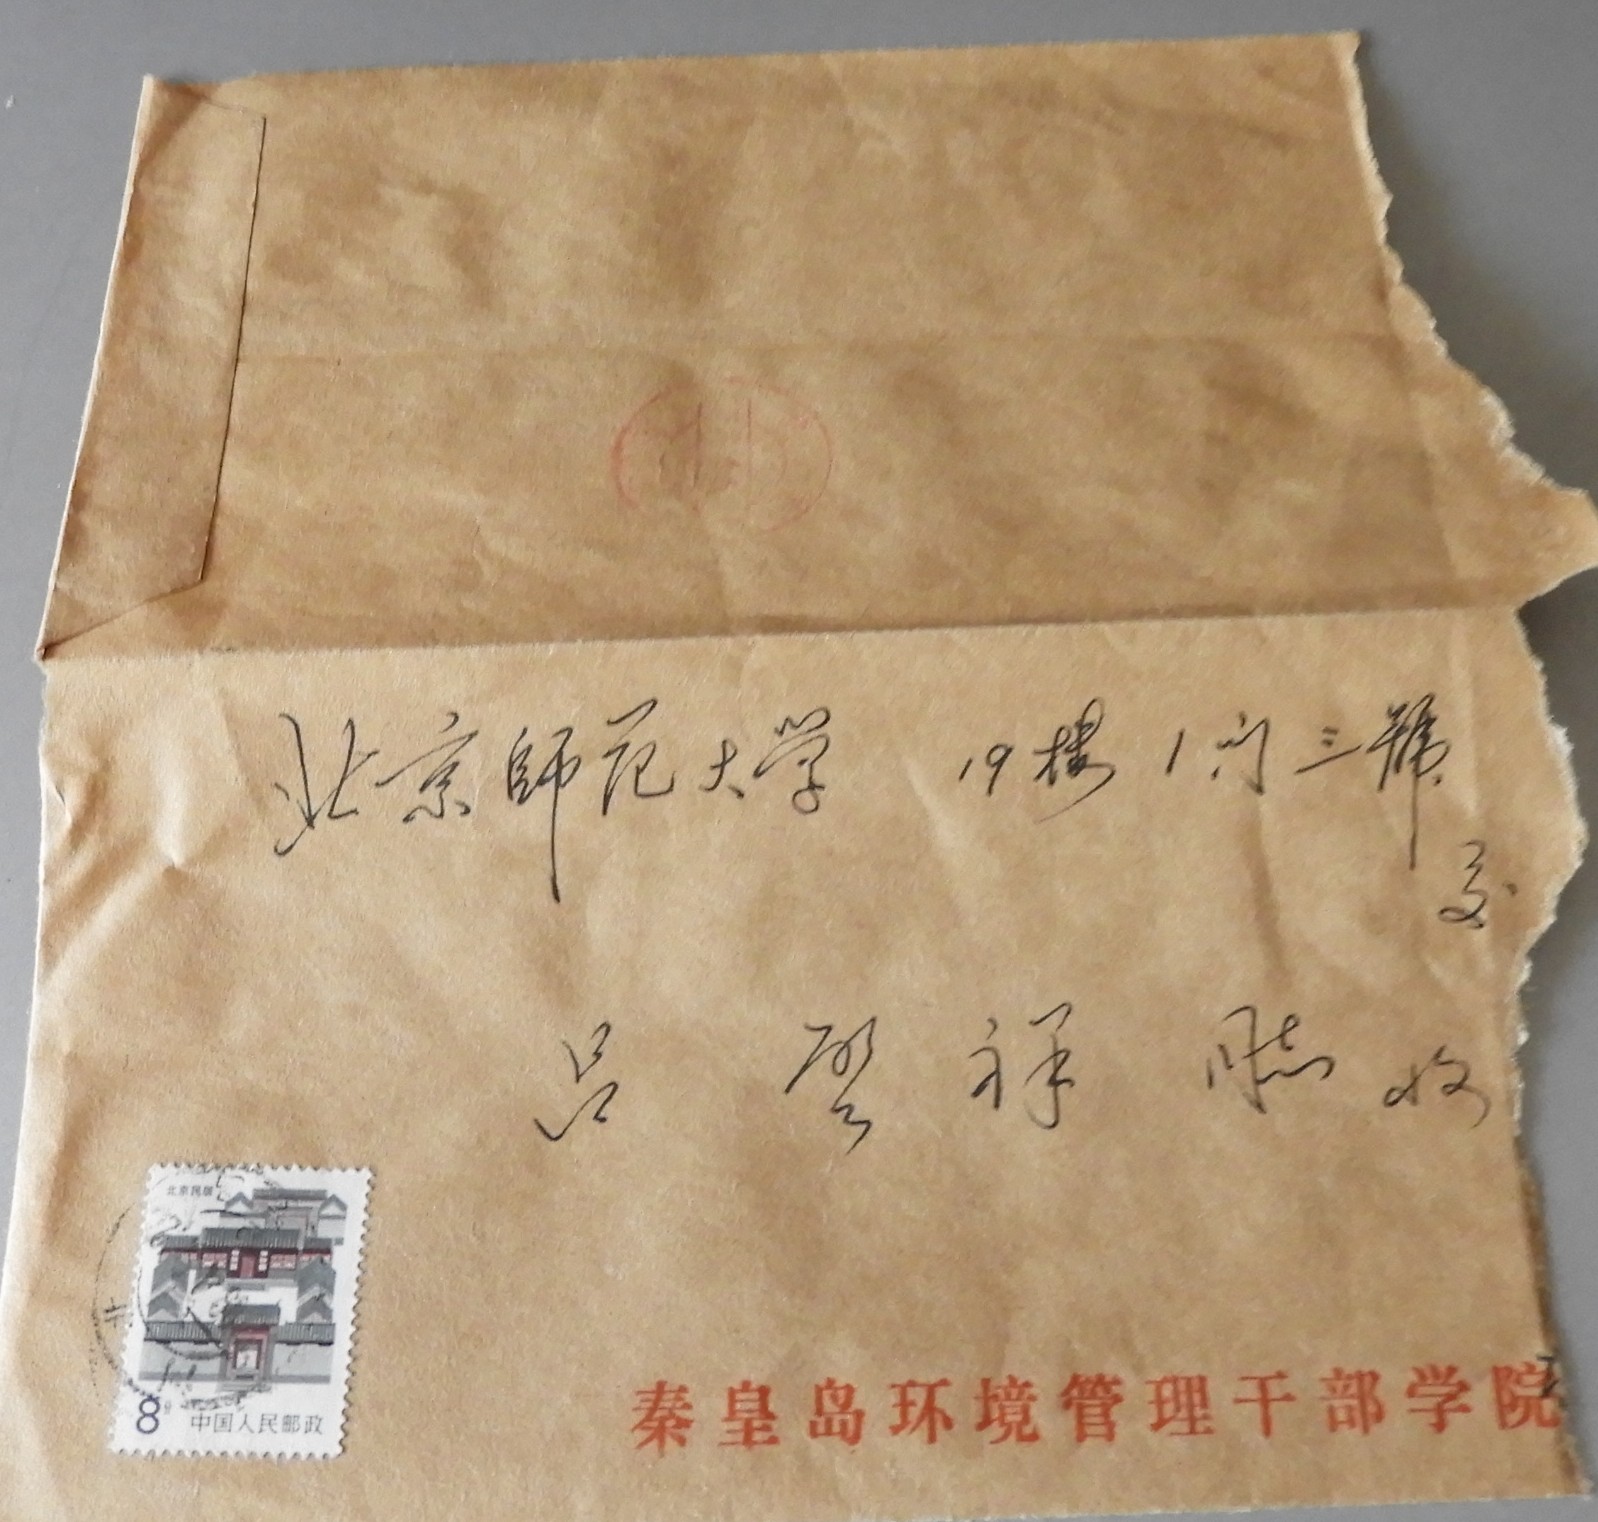 北京師范大学 19楼1门三號
交
吕 启祥 同志 收
北京民居
8分 中国人民邮政
北
秦皇岛环境管理干部学院